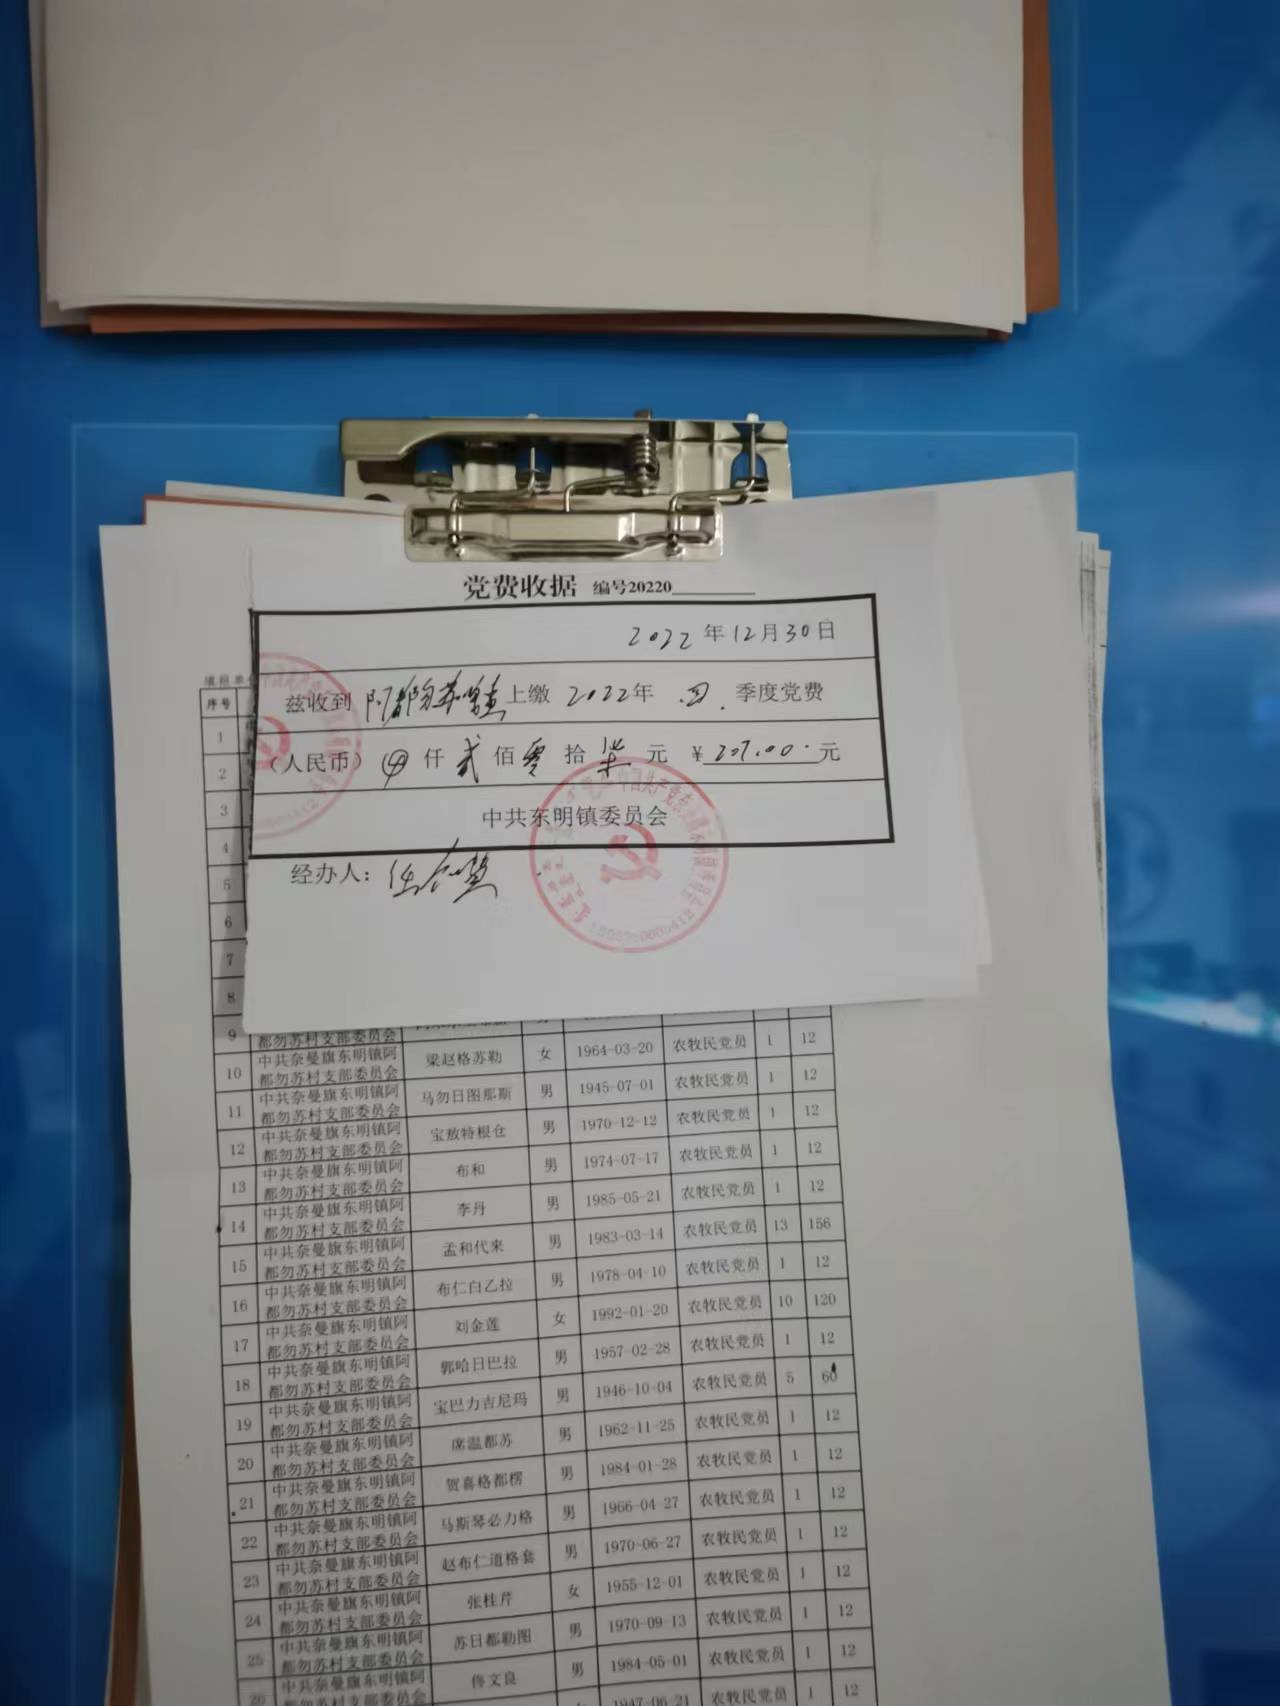 党费收据 编号20220
2022年12月30日
兹收到 阿都勿苏 上缴 2022年 四 季度党费
（人民币） 仟贰佰零拾柒元 ￥207.00元
中共东明镇委员会
经办人：
填报单位
序号
1
2
3
4
5
6
7
8
9 都勿苏村支部委员会
10 中共奈曼旗东明镇阿都勿苏村支部委员会 梁赵格苏勒 女 1964-03-20 农牧民党员 1 12
11 中共奈曼旗东明镇阿都勿苏村支部委员会 马勿日图那斯 男 1945-07-01 农牧民党员 1 12
12 中共奈曼旗东明镇阿都勿苏村支部委员会 宝敖特根仓 男 1970-12-12 农牧民党员 1 12
13 中共奈曼旗东明镇阿都勿苏村支部委员会 布和 男 1974-07-17 农牧民党员 1 12
14 中共奈曼旗东明镇阿都勿苏村支部委员会 李丹 男 1985-05-21 农牧民党员 1 12
15 中共奈曼旗东明镇阿都勿苏村支部委员会 孟和代来 男 1983-03-14 农牧民党员 13 156
16 中共奈曼旗东明镇阿都勿苏村支部委员会 布仁白乙拉 男 1978-04-10 农牧民党员 1 12
17 中共奈曼旗东明镇阿都勿苏村支部委员会 刘金莲 女 1992-01-20 农牧民党员 10 120
18 中共奈曼旗东明镇阿都勿苏村支部委员会 郭哈日巴拉 男 1957-02-28 农牧民党员 1 12
19 中共奈曼旗东明镇阿都勿苏村支部委员会 宝巴力吉尼玛 男 1946-10-04 农牧民党员 5 60
20 中共奈曼旗东明镇阿都勿苏村支部委员会 席温都苏 男 1962-11-25 农牧民党员 1 12
21 中共奈曼旗东明镇阿都勿苏村支部委员会 贺喜格都楞 男 1984-01-28 农牧民党员 1 12
22 中共奈曼旗东明镇阿都勿苏村支部委员会 马斯琴必力格 男 1966-04-27 农牧民党员 1 12
23 中共奈曼旗东明镇阿都勿苏村支部委员会 赵布仁道格套 男 1970-06-27 农牧民党员 1 12
24 中共奈曼旗东明镇阿都勿苏村支部委员会 张桂芹 女 1955-12-01 农牧民党员 1 12
25 中共奈曼旗东明镇阿都勿苏村支部委员会 苏日都勒图 男 1970-09-13 农牧民党员 1 12
26 中共奈曼旗东明镇阿都勿苏村支部委员会 佟文良 男 1984-05-01 农牧民党员 1 12
1947-06-21 农牧民党员 1 12